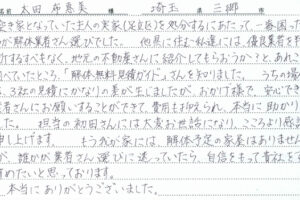 太田 布恵美 様 埼玉 県 三郷 市
空き家となっていた主人の実家(足立区)を処分するにあたって、一番困って
が解体業者さん選びでした。 他県に住む私達には、優良業者を
断するすべなく、地元の不動産さんに紹介してもらおうか?と、あれこ
していたところ、「解体無料見積ガイド」さんを知りました。 うちの場
、3社の見積にかなりの差が生じましたが、おかげ様で、安心でき
業者さんにお願いすることができて、費用も抑えられ、本当に助かり
した。 担当の初田さんには大変お世話になり、こころより感謝
申し上げます。 もう我が家には、解体予定の家屋はありません
が、誰かが業者さん選びに迷っていたら、自信をもって貴社を
薦めたいと思っております。
本当にありがとうございました。